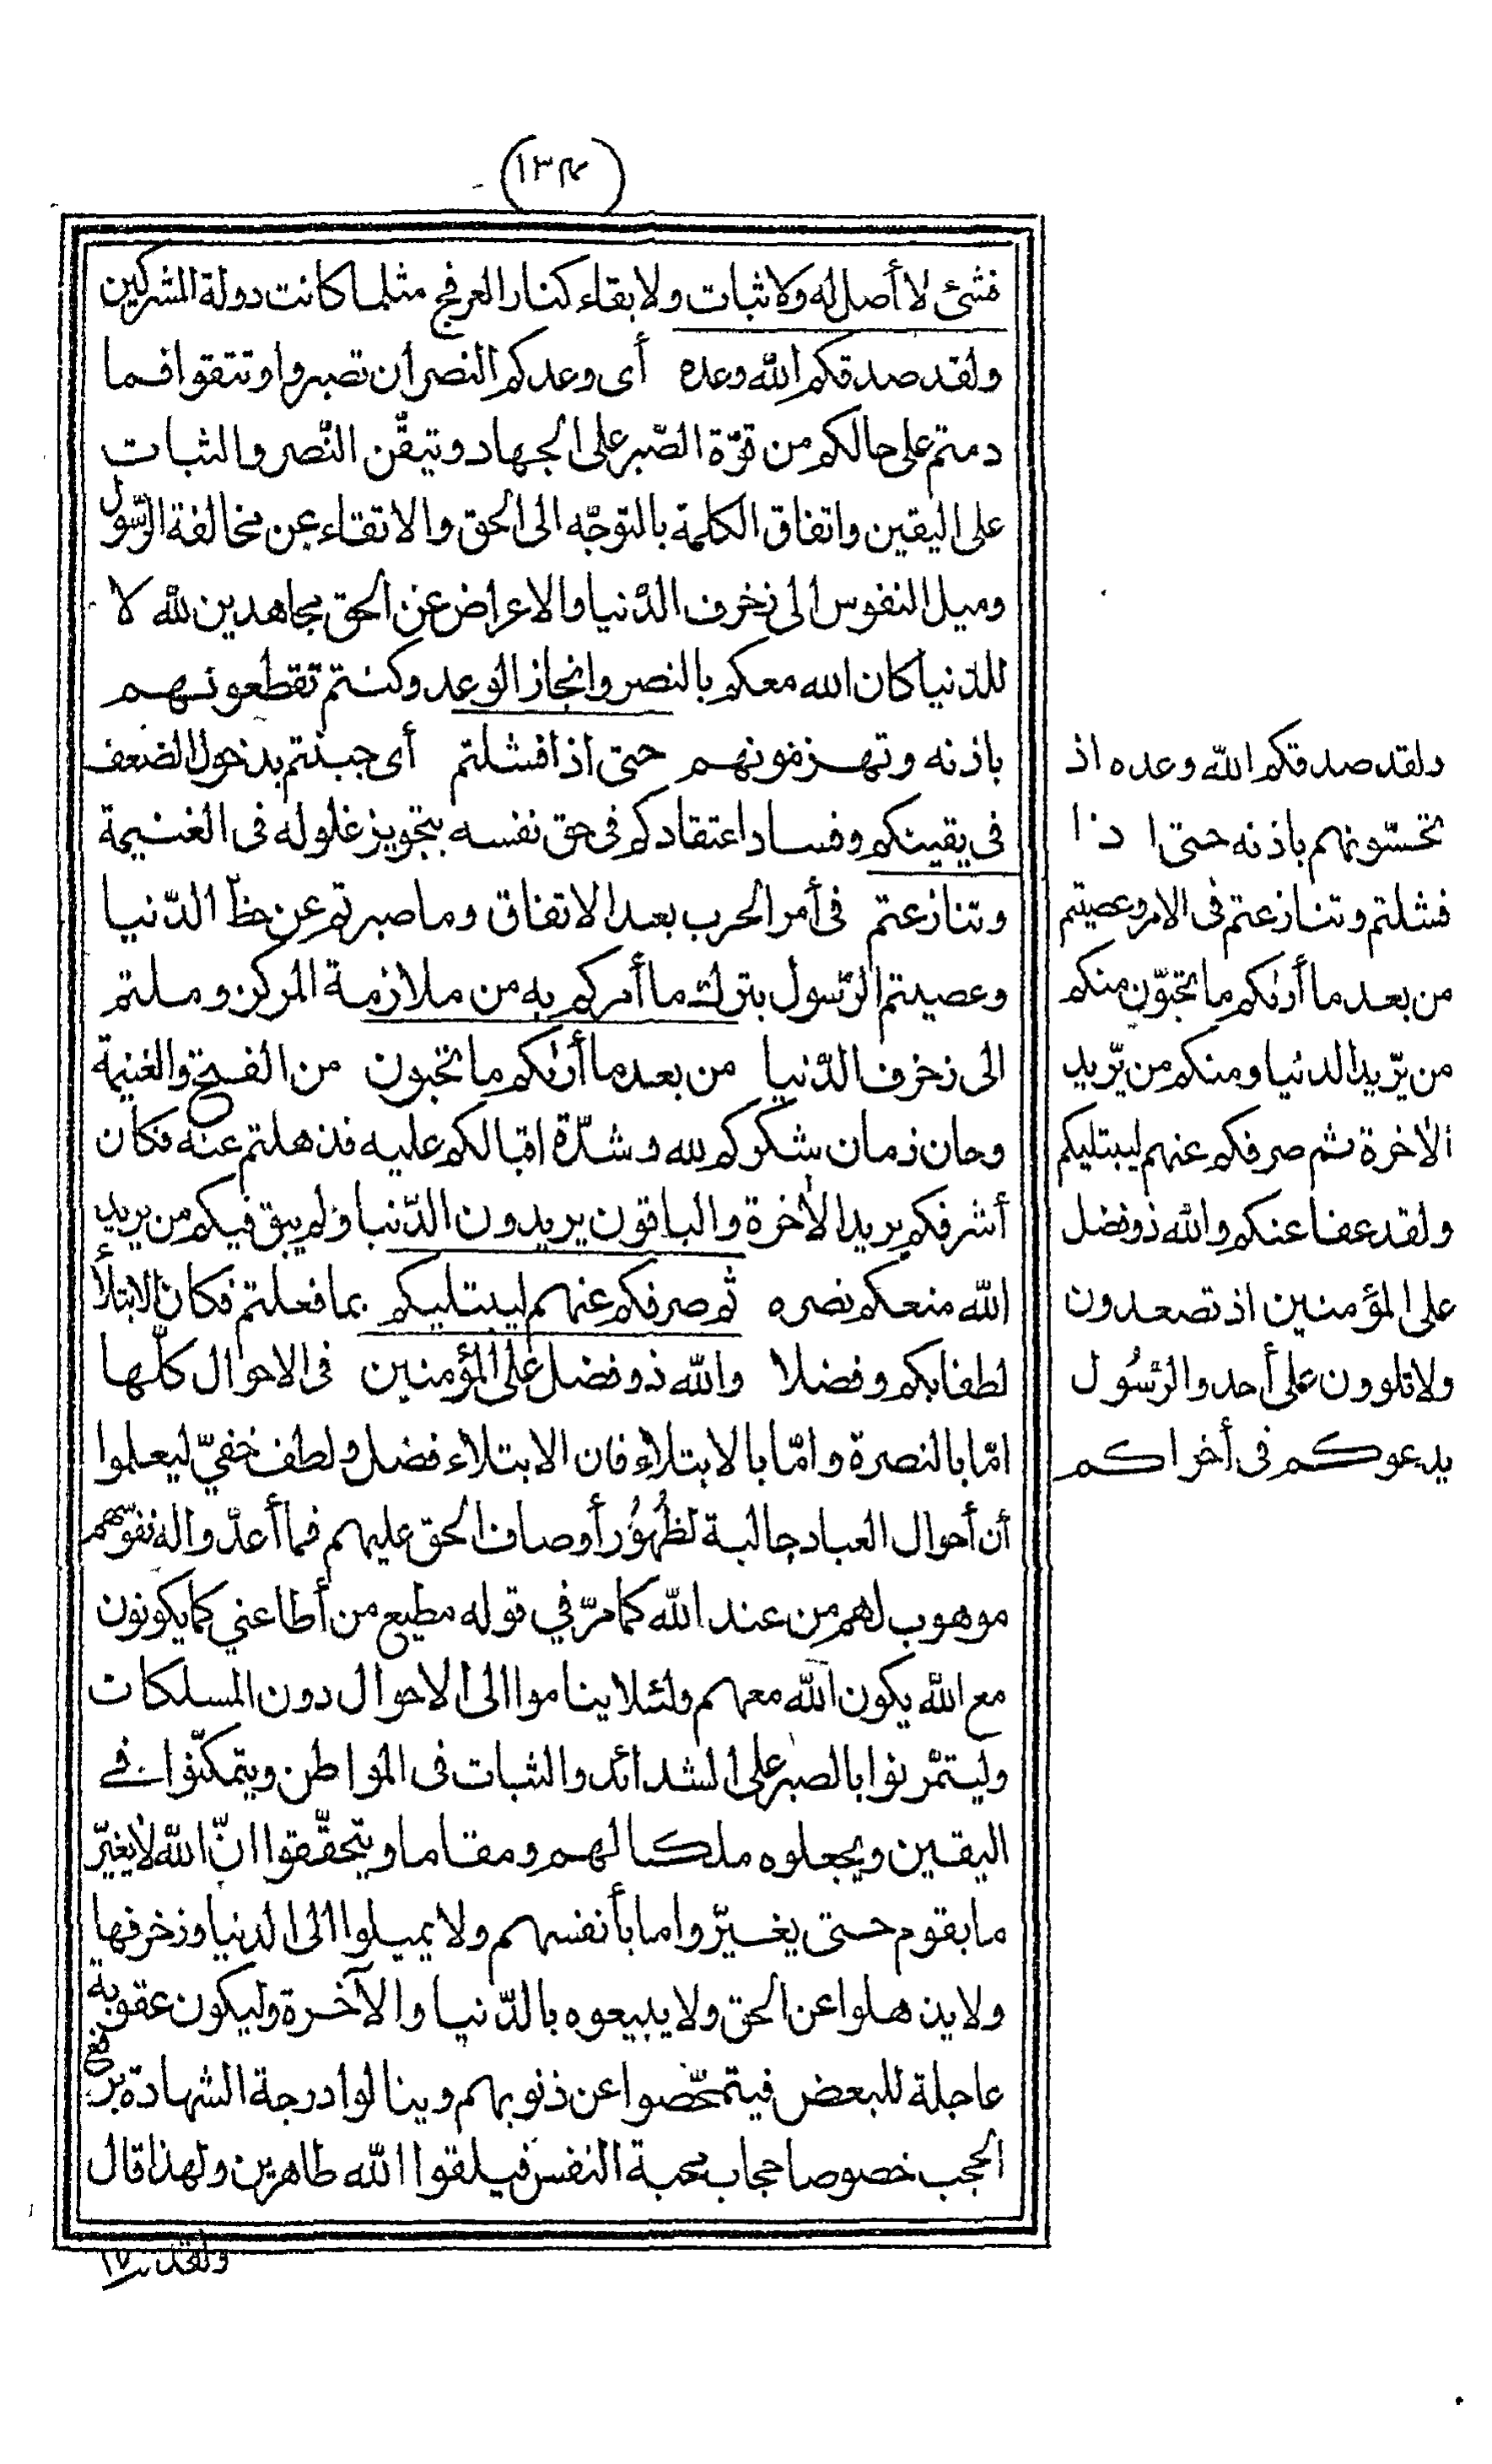 (١٣٤)
فشئ لا أصل له ولا ثبات ولا بقاء كنار العرفج مثلما كانت دولة المشركين
ولقد صدقكم الله وعده أى وعدكم النصر ان تصبروا وتتقوا فما
دمتم على حالكم من قوّة الصّبر على الجهاد وتيقّن النّصر والثبات
على اليقين واتفاق الكلمة بالتوجّه الى الحق والاتقاء عن مخالفة الرّسول
وميل النفوس الى زخرف الدّنيا والاعراض عن الحق مجاهدين لله لا
للدّنيا كان الله معكم بالنصر وانجاز الوعد وكنتم تقطعونهم
باذنه وتهزمونهم حتى اذا فشلتم أى جبنتم بدخول الضعف
فى يقينكم وفساد اعتقادكم فى حق نفسه بتجويز غلوله فى الغنيمة
وتنازعتم فى أمر الحرب بعد الاتفاق وما صبرتم عن حظّ الدّنيا
وعصيتم الرّسول بترك ما أمركم به من ملازمة المركز وملتم
الى زخرف الدّنيا من بعد ما أرٰىكم ما تحبون من الفتح والغنيمة
وحان زمان شكركم لله وشدّة اقبالكم عليه فذهلتم عنه فكان
أشرفكم يريد الاٰخرة والباقون يريدون الدّنيا ولم يبق فيكم من يريد
الله منعكم نصره ثم صرفكم عنهم ليبتليكم بما فعلتم فكان الابتلأ
لطفا بكم وفضلا والله ذو فضل على المؤمنين فى الاحوال كلّها
امّا بالنصرة وامّا بالابتلاء فان الابتلاء فضل ولطف خفيّ ليعلموا
أن أحوال العباد جالبة لظُهُوُر أوصاف الحق عليهم فما أعدّوا له نفوسهم
موهوب لهم من عند الله كما مرّ في قوله مطيع من أطاعني كما يكونون
مع الله يكون الله معهم ولئلا يناموا الى الاحوال دون المسلكات
وليتمرّنوا بالصبر على الشدائد والثبات فى المواطن ويتمكّنوا فے
اليقين ويجعلوه ملكا لهم ومقاما ويتحقّقوا انّ الله لا يغيّر
ما بقوم حتى يغيّروا ما بأنفسهم ولا يميلوا الى الدنيا وزخرفها
ولا يذهلوا عن الحق ولا يبيعوه بالدّنيا والآخرة وليكون عقوبة
عاجلة للبعض فيتمحّصوا عن ذنوبهم وينالوا درجة الشهادة برفع
الحجب خصوصا حجاب محبة النفس فيلقوا الله طاهرين ولهذا قال
ولقد صدقكم الله وعده اذ
تحسّونهم باذنه حتى ا ذا
فشلتم وتنازعتم فى الامر وعصيتم
من بعد ما أرٰىكم ما تحبّون منكم
من يّريد الدنيا ومنكم من يّريد
الاٰخرة ثم صرفكم عنهم ليبتليكم
ولقد عفا عنكم والله ذو فضل
على المؤمنين اذ تصعدون
ولا تلوون على أحد والرّسُول
يدعوكم فى أخراكم
ولقد